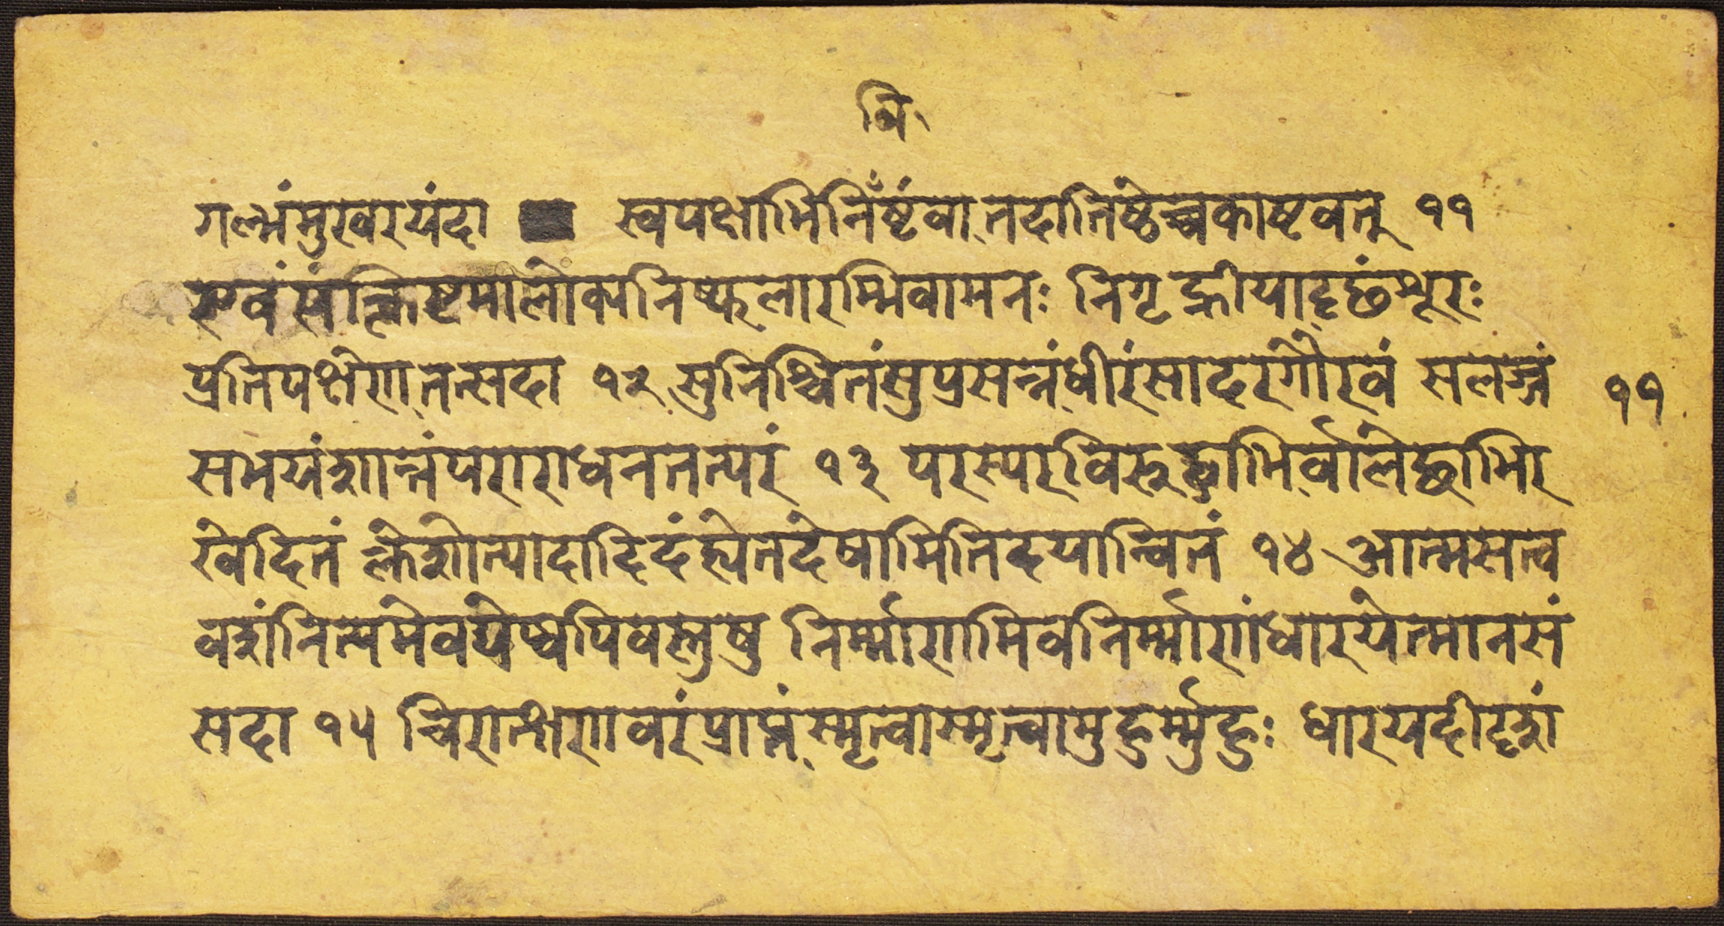 वि
गल्भंमुखरयंदा स्वपक्षाभिनिँष्टंवा तदातिष्ठेच्चकाष्टवत् ११
एवंसंक्लिष्टमालोक्यनिष्फलारम्भिवामनः निगृह्णीयादृछंश्रूरः
प्रतिपक्षेणातत्सदा १२ सुनिश्चितंसुप्रसन्नंधीरंसादरगौरवं सलज्जं
सभयंशान्तंपराराधनतत्परं १३ परस्परविरुद्धाभिर्वालेछाभिर
खेदितं क्लेशोत्पादादिदंह्येतदेषामितिदयान्वितं १४ आत्मसत्व
वशंनित्यमेवद्येष्वपिवस्तुषु निर्म्माणामिवनिर्म्माणंधारयेत्मानसं
सदा १५ चिरात्क्षणवरंप्राप्तं स्मृत्वास्मृत्वामुहुर्म्मुहुः धारयदीदृशं
११